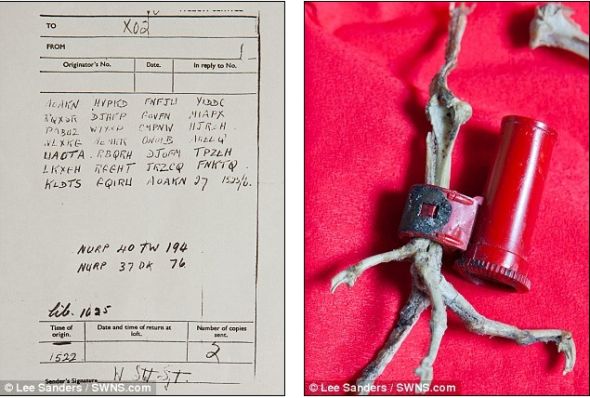 TO X02
FROM
Originator's No. Date. In reply to No.
AOAKN HVPKD FNFJU YIDDC
RQXSR DJHFP GOVFN MIAPX
PABUZ WYYNP CMPNW HJRZH
NLXKG MEMKK ONOIB AKEEQ
UAOTA RBQRH DJOFM TPZEH
LKXGH RGGHT JRZCQ FNKTQ
KLDTS GQIRU AOAKN 27 1525/6.
NURP 40 TW 194
NURP 37 DK 76
lib. 1625
Time of origin. Date and time of return at loft. Number of copies sent.
1522 2
Sender's Signature W Stot Sjt.
© Lee Sanders / SWNS.com
© Lee Sanders / SWNS.com